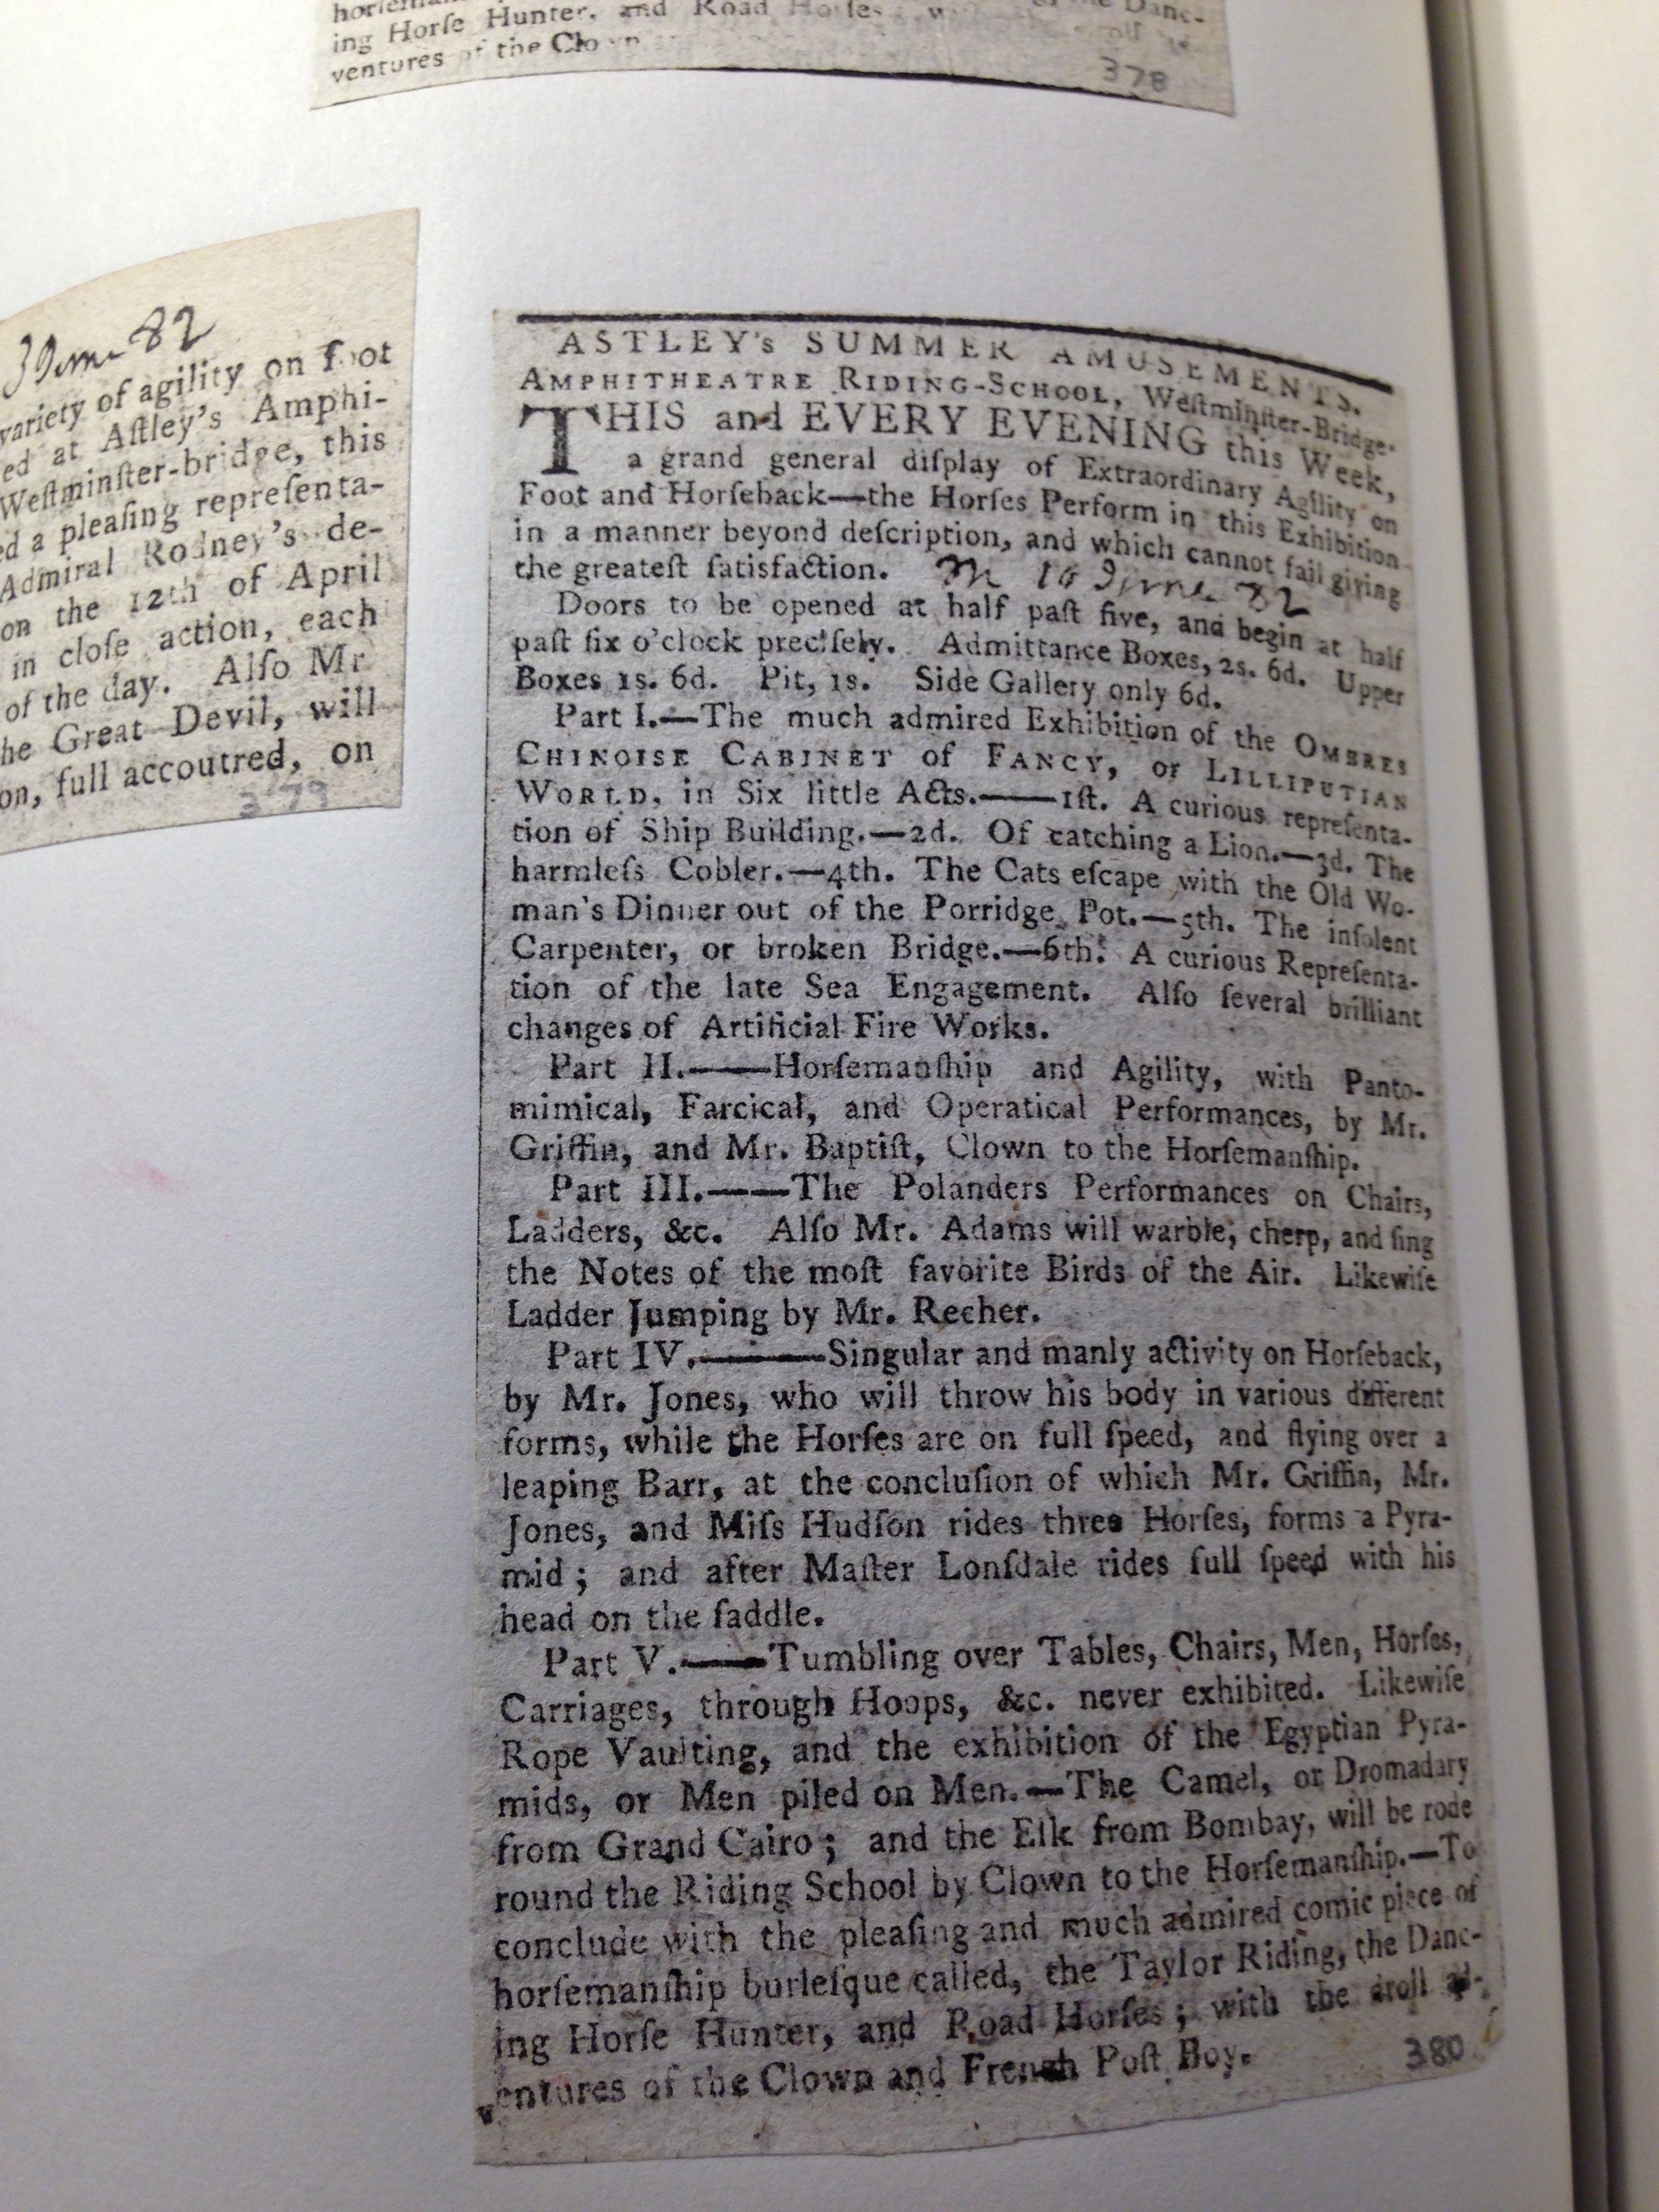 ing Horſe Hunter, and Road Horſes
ventures of the Clown
378
June 82
variety of agility on foot
ed at Aſtley's Amphi-
Weſtminſter-bridge, this
ed a pleaſing repreſenta-
Admiral Rodney's de-
on the 12th of April
in cloſe action, each
of the day. Alſo Mr
he Great Devil, will
on, full accoutred, on
379
ASTLEY's SUMMER AMUSEMENTS.
AMPHITHEATRE RIDING-SCHOOL, Weſtminſter-Bridge.
THIS and EVERY EVENING this Week,
a grand general diſplay of Extraordinary Agility on
Foot and Horſeback—the Horſes Perform in this Exhibition
in a manner beyond deſcription, and which cannot fail giving
the greateſt ſatisfaction. M 10 June 82
Doors to be opened at half paſt five, and begin at half
paſt ſix o'clock preciſely. Admittance Boxes, 2s. 6d. Upper
Boxes 1s. 6d. Pit, 1s. Side Gallery only 6d.
Part I.—The much admired Exhibition of the OMBRES
CHINOISE CABINET of FANCY, or LILLIPUTIAN
WORLD, in Six little Acts.——1ſt. A curious repreſenta-
tion of Ship Building.—2d. Of catching a Lion.—3d. The
harmleſs Cobler.—4th. The Cats eſcape with the Old Wo-
man's Dinner out of the Porridge Pot.—5th. The inſolent
Carpenter, or broken Bridge.—6th. A curious Repreſenta-
tion of the late Sea Engagement. Alſo ſeveral brilliant
changes of Artificial Fire Works.
Part II.——Horſemanſhip and Agility, with Panto-
mimical, Farcical, and Operatical Performances, by Mr.
Griffin, and Mr. Baptiſt, Clown to the Horſemanſhip.
Part III.——The Polanders Performances on Chairs,
Ladders, &c. Alſo Mr. Adams will warble, cherp, and ſing
the Notes of the moſt favorite Birds of the Air. Likewiſe
Ladder Jumping by Mr. Recher.
Part IV.———Singular and manly activity on Horſeback,
by Mr. Jones, who will throw his body in various different
forms, while the Horſes are on full ſpeed, and flying over a
leaping Barr, at the concluſion of which Mr. Griffin, Mr.
Jones, and Miſs Hudſon rides three Horſes, forms a Pyra-
mid; and after Maſter Lonſdale rides full ſpeed with his
head on the ſaddle.
Part V.——Tumbling over Tables, Chairs, Men, Horſes,
Carriages, through Hoops, &c. never exhibited. Likewiſe
Rope Vaulting, and the exhibition of the Egyptian Pyra-
mids, or Men piled on Men.—The Camel, or Dromadary
from Grand Cairo; and the Elk from Bombay, will be rode
round the Riding School by Clown to the Horſemanſhip.—To
conclude with the pleaſing and much admired comic piece of
horſemanſhip burleſque called, the Taylor Riding, the Danc-
ing Horſe Hunter, and Road Horſes; with the droll ad-
ventures of the Clown and French Poſt Boy.
380